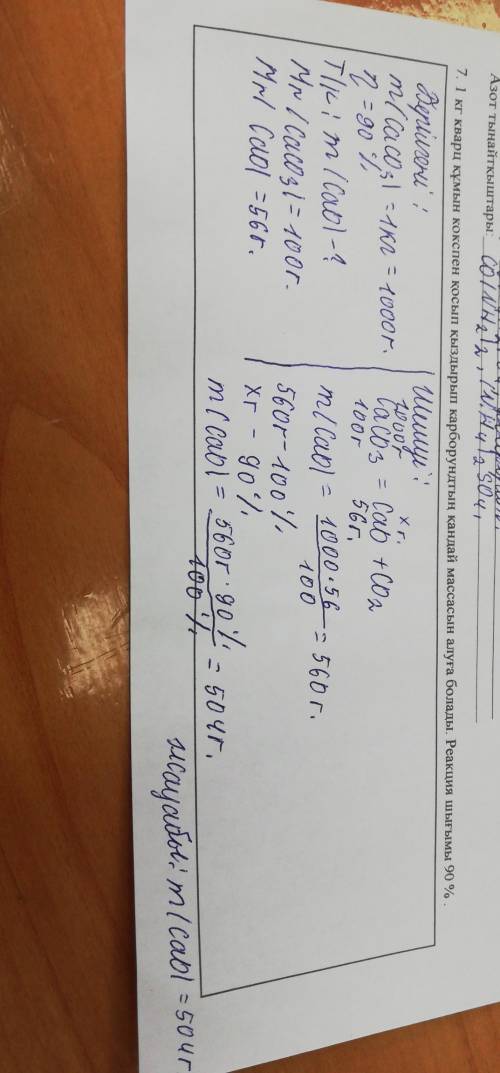 Азот тынайтқыштары: CO(NH₂)₂, (NH₄)₂SO₄
7. 1 кг кварц құмын кокспен қосып қыздырып карборундтың қандай массасын алуға болады. Реакция шығымы 90 %.
Берілгені:
m(CaCO₃) = 1кг = 1000г.
η = 90 %
Т/к: m(CaO) - ?
Mr(CaCO₃) = 100г.
Mr(CaO) = 56г.
Шешуі:
1000г x г.
CaCO₃ = CaO + CO₂
100г 56г.
m(CaO) = 1000·56 / 100 = 560г.
560г - 100%
xг - 90%
m(CaO) = 560г·90% / 100% = 504г.
жауабы: m(CaO) = 504г